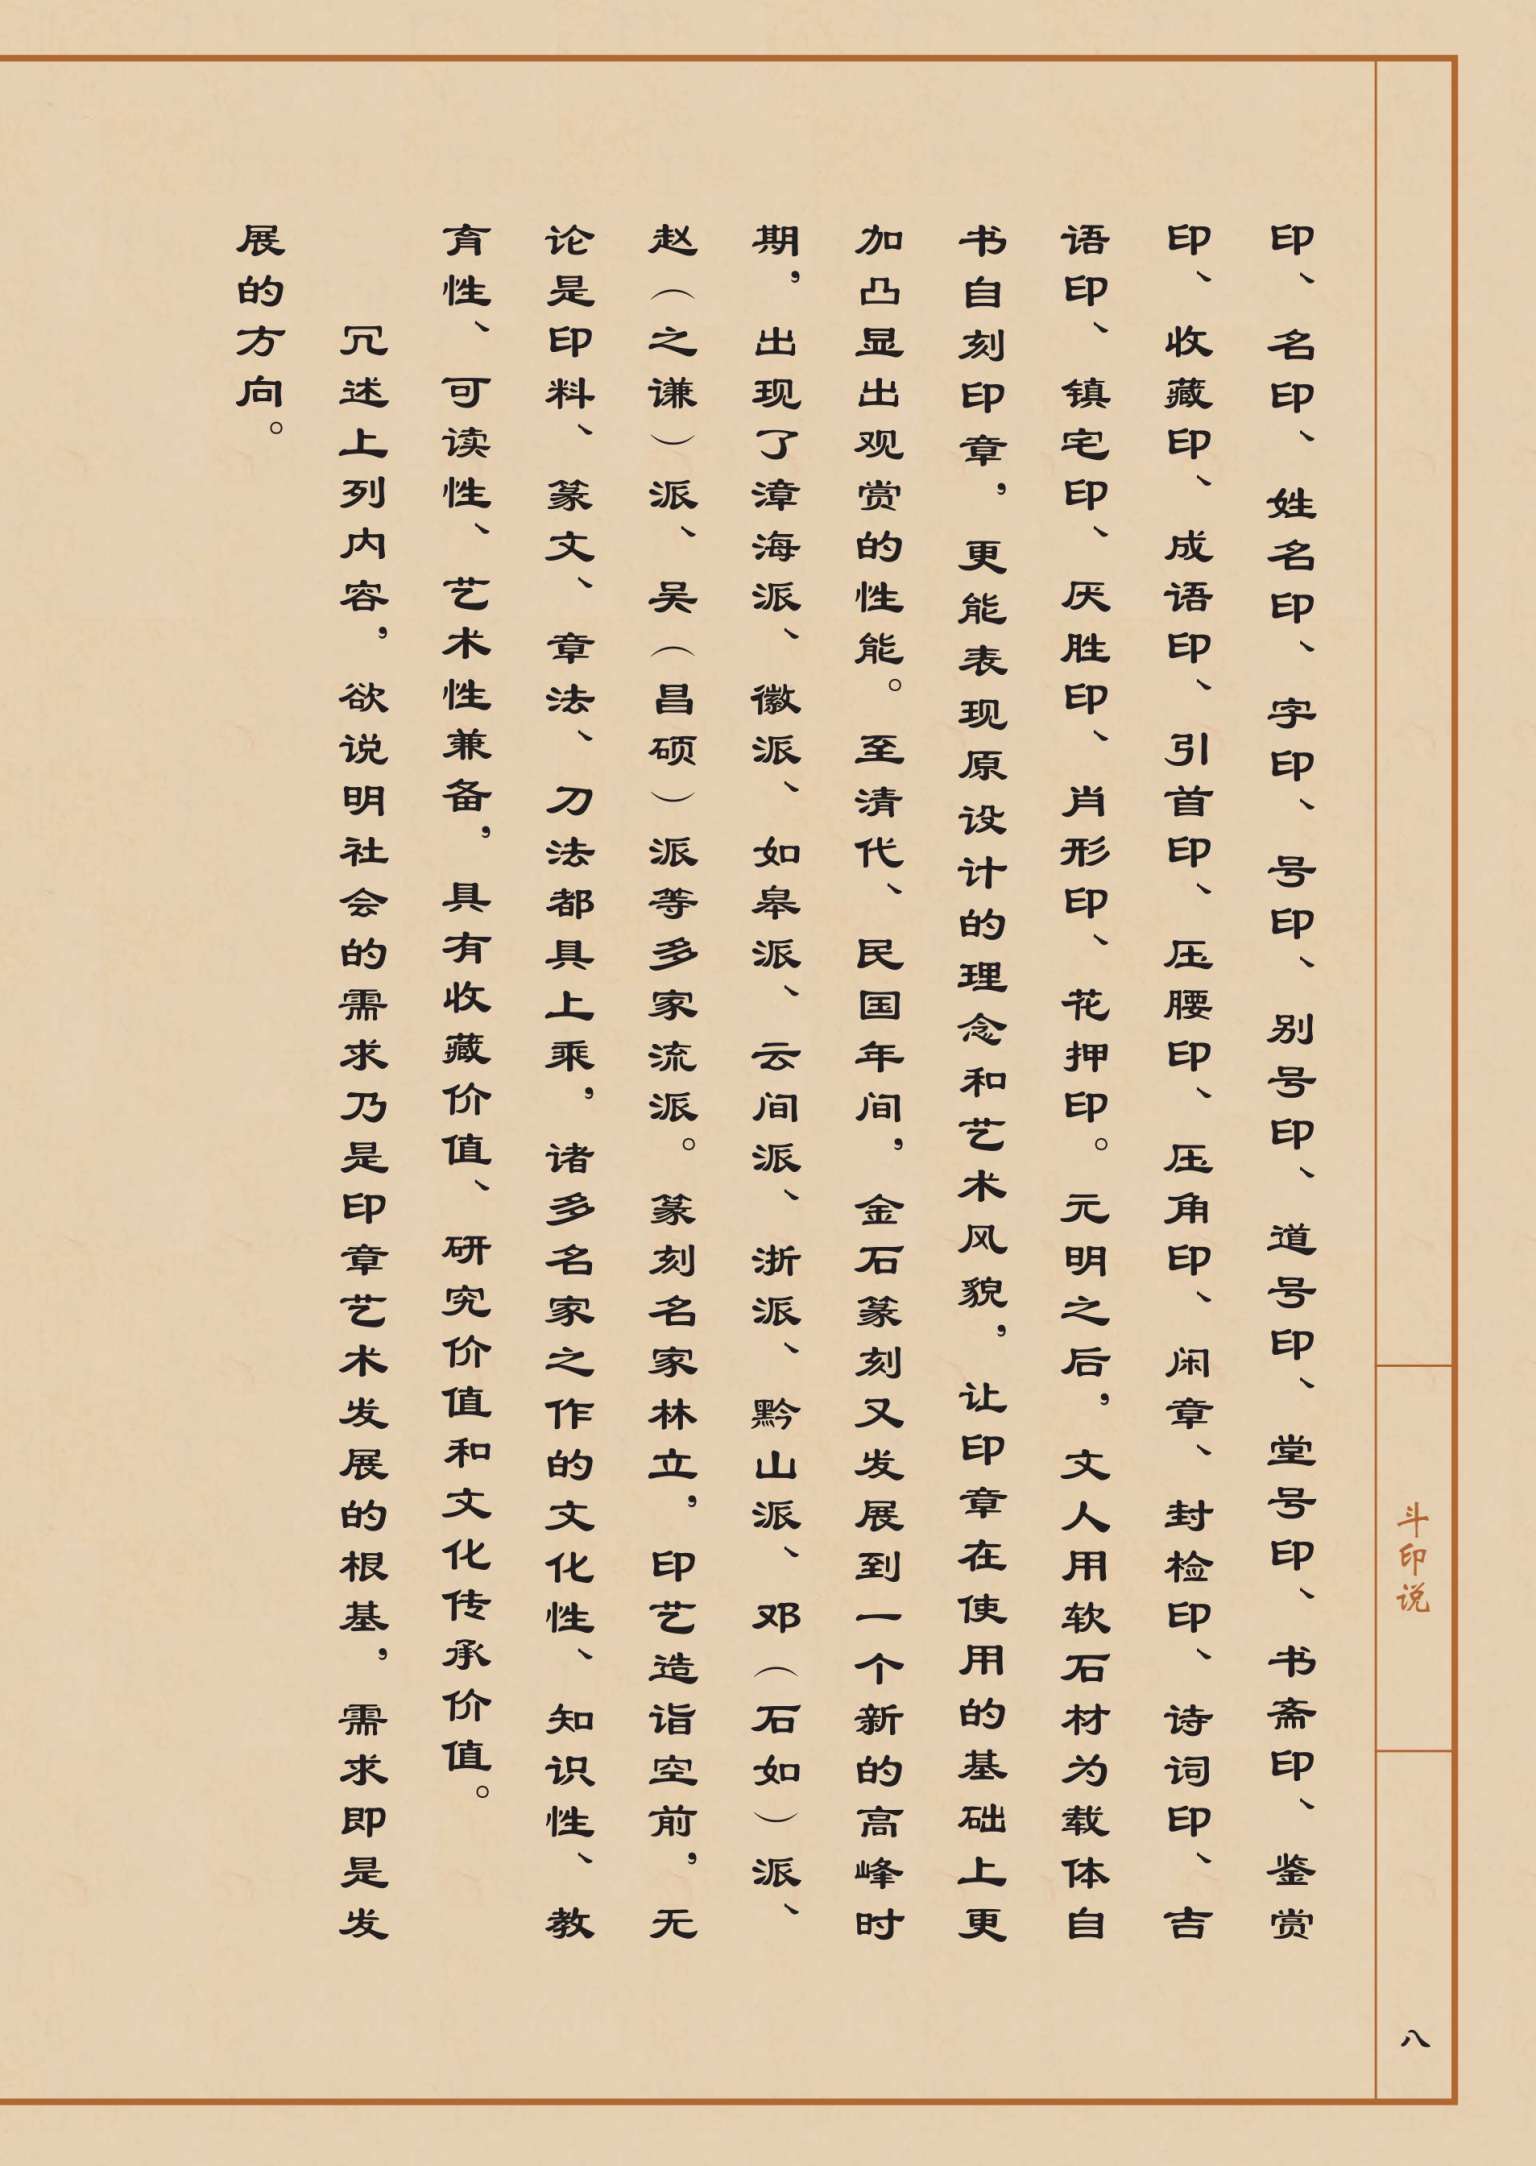 印、名印、姓名印、字印、号印、别号印、道号印、堂号印、书斋印、鉴赏
印、收藏印、成语印、引首印、压腰印、压角印、闲章、封检印、诗词印、吉
语印、镇宅印、厌胜印、肖形印、花押印。元明之后，文人用软石材为载体自
书自刻印章，更能表现原设计的理念和艺术风貌，让印章在使用的基础上更
加凸显出观赏的性能。至清代、民国年间，金石篆刻又发展到一个新的高峰时
期，出现了漳海派、徽派、如皋派、云间派、浙派、黔山派、邓（石如）派、
赵（之谦）派、吴（昌硕）派等多家流派。篆刻名家林立，印艺造诣空前，无
论是印料、篆文、章法、刀法都具上乘，诸多名家之作的文化性、知识性、教
育性、可读性、艺术性兼备，具有收藏价值、研究价值和文化传承价值。
冗述上列内容，欲说明社会的需求乃是印章艺术发展的根基，需求即是发
展的方向。
斗印说
八